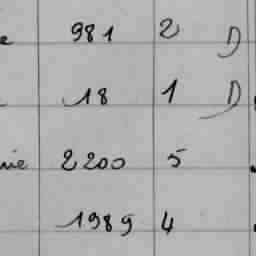 e 981 2 D
18 1 D
nie 2200 5
1989 4